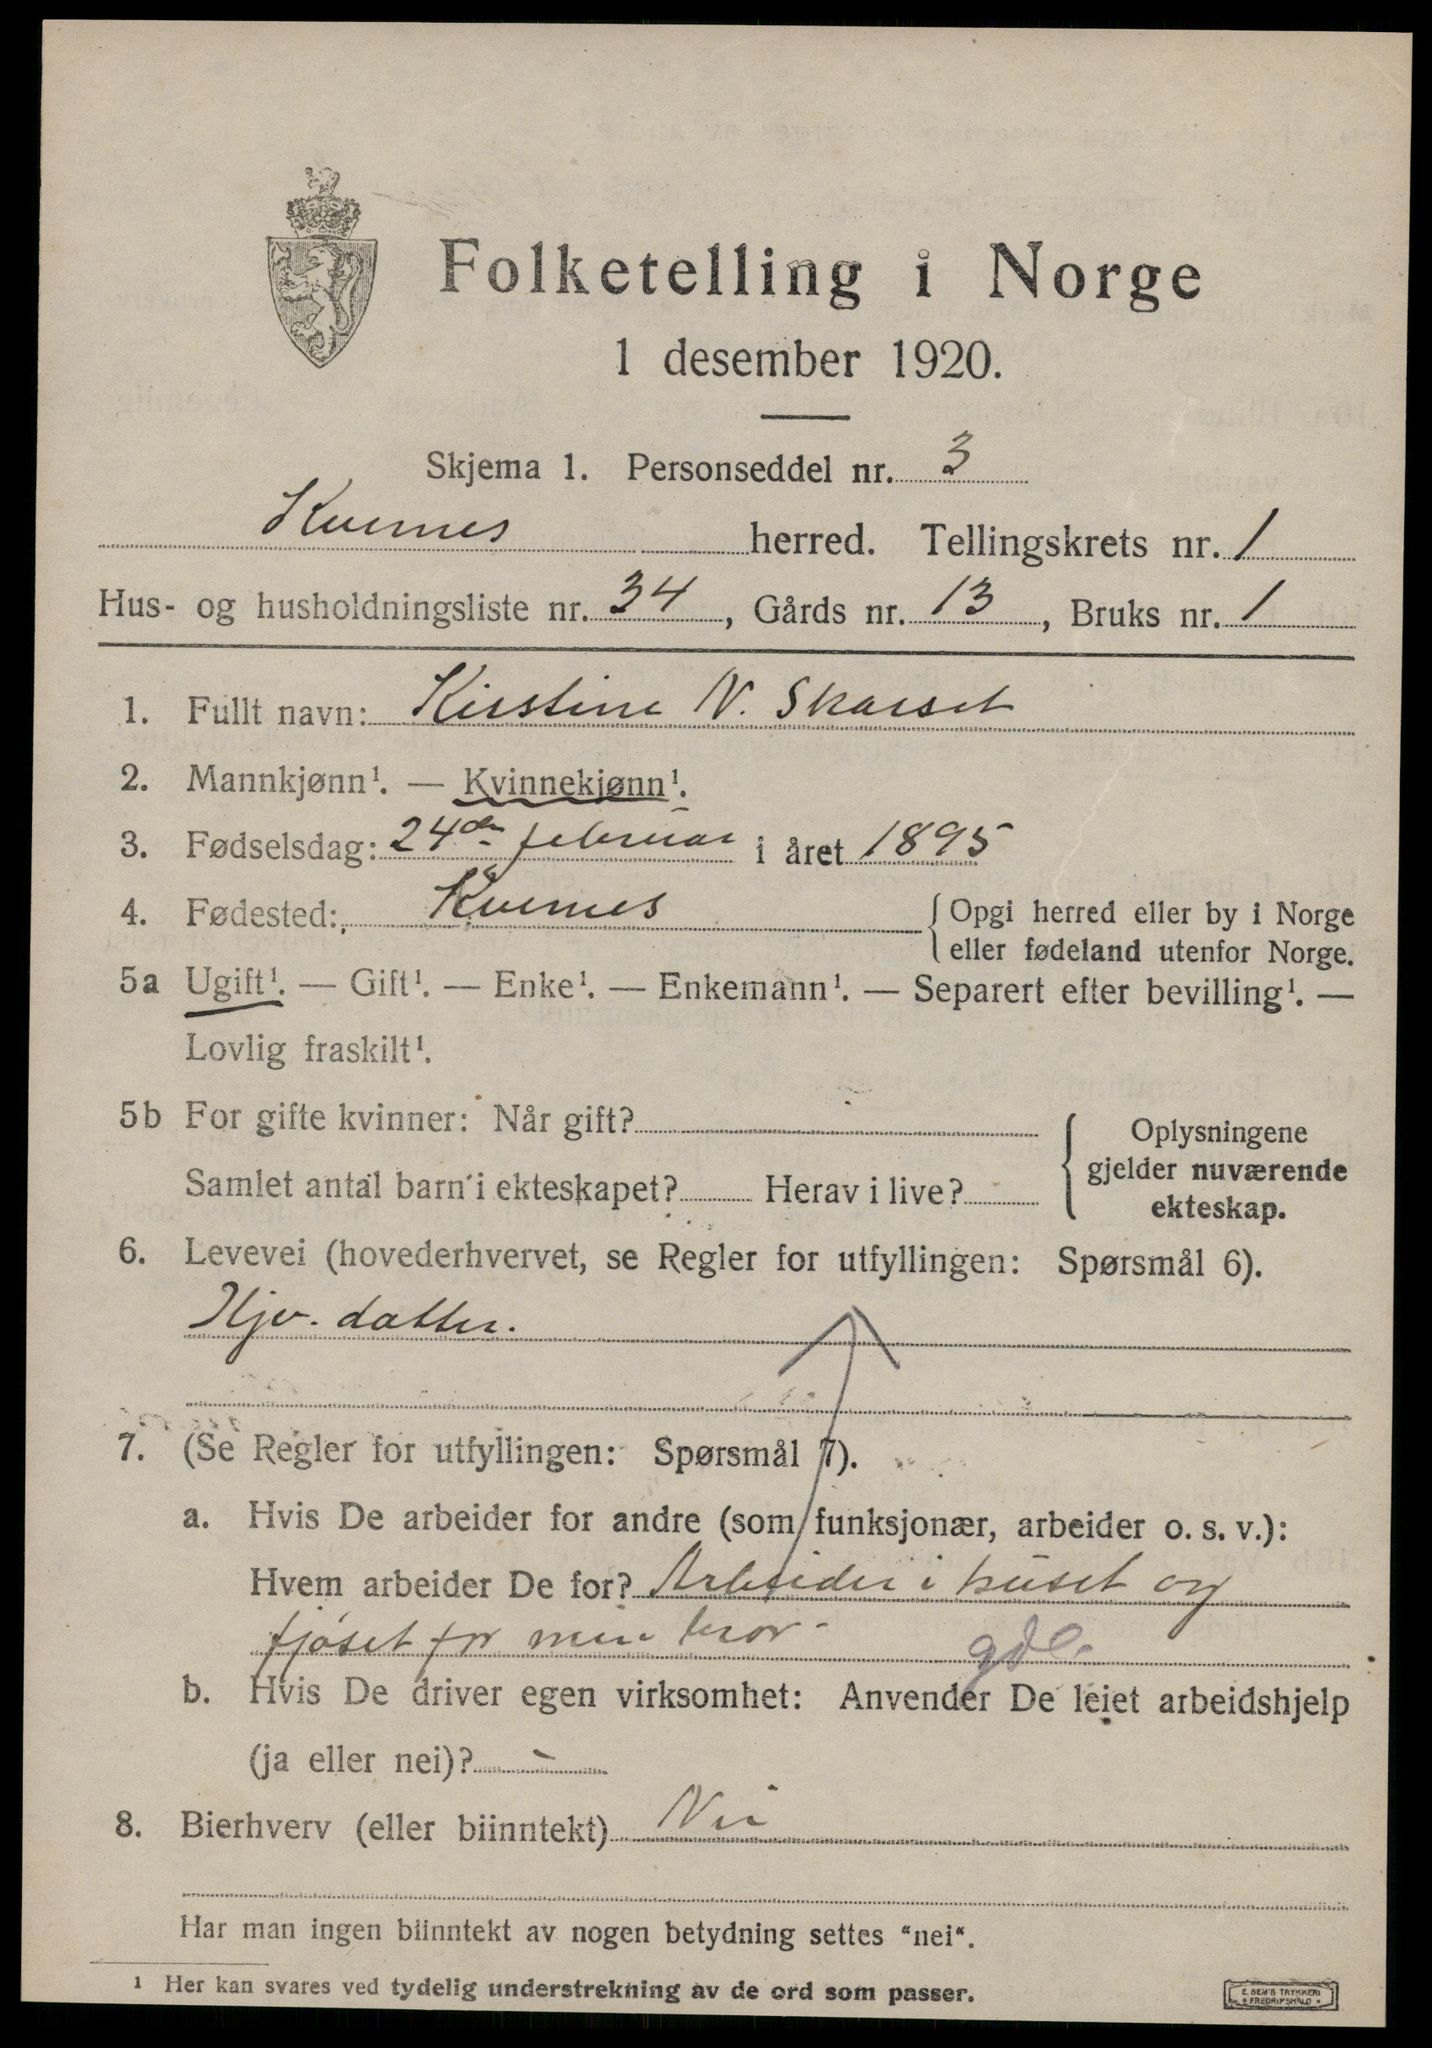 Folketelling i Norge
1 desember 1920.
Skjema 1. Personseddel nr. 3
Kvernes herred. Tellingskrets nr. 1
Hus- og husholdningsliste nr. 34, Gårds nr. 13, Bruks nr. 1
1. Fullt navn: Kirstine N. Skarset
2. Mannkjønn¹. — Kvinnekjønn¹.
3. Fødselsdag: 24de februar i året 1895
4. Fødested: Kvernes {Opgi herred eller by i Norge
eller fødeland utenfor Norge.
5a Ugift¹. — Gift¹. — Enke¹. — Enkemann¹. — Separert efter bevilling¹. —
Lovlig fraskilt¹.
5b For gifte kvinner: Når gift?
Samlet antal barn i ekteskapet? Herav i live?
{Oplysningene
gjelder nuværende
ekteskap.
6. Levevei (hovederhvervet, se Regler for utfyllingen: Spørsmål 6).
Hjv. datter.
7. (Se Regler for utfyllingen: Spørsmål 7).
a. Hvis De arbeider for andre (som funksjonær, arbeider o. s. v.):
Hvem arbeider De for? Arbeider i huset og
fjøset for min bror
b. Hvis De driver egen virksomhet: Anvender De leiet arbeidshjelp
(ja eller nei)? -
8. Bierhverv (eller biinntekt) Nei
Har man ingen biinntekt av nogen betydning settes "nei".
¹ Her kan svares ved tydelig understrekning av de ord som passer.
E. SEM'S TRYKKERI
FREDRIKSHALD